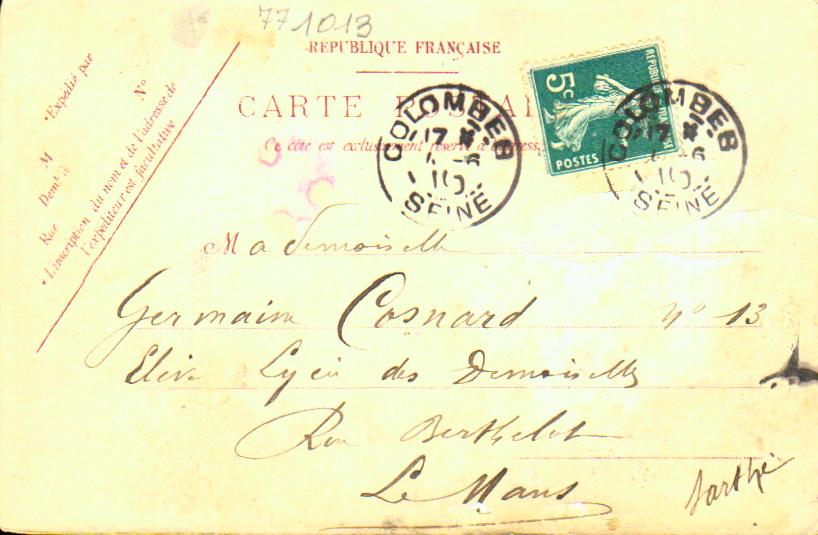 771013
RÉPUBLIQUE FRANÇAISE
CARTE POSTALE
Ce côté est exclusivement réservé à l'adresse.
Expédié par
M
Demt à
Rue
No
L'inscription du nom et de l'adresse de
l'expéditeur est facultative
COLOMBES
17
6
10
SEINE
5c
RÉPUBLIQUE FRANÇAISE
POSTES
COLOMBES
17
6
10
SEINE
Mademoiselle
Germaine Cosnard No 13
Elève Lycée des Demoiselles
Rue Berthelot
Le Mans
Sarthe